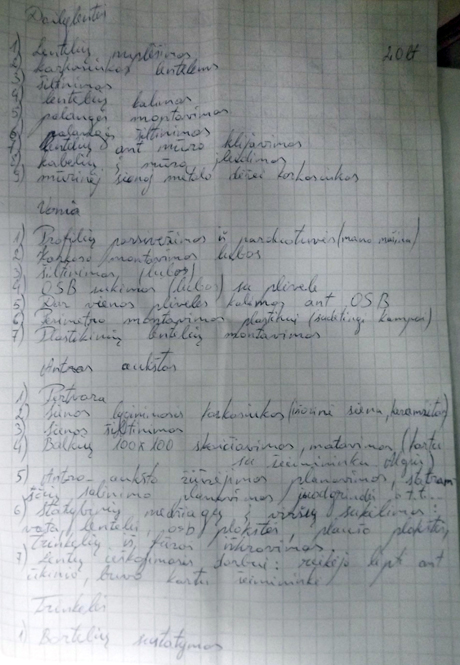 Dailylentės
1) Lentelių nuplėšimas
2) karkasiukas lentelėms
3) šiltinimas
4) lentelių kalimas
5) palangės montavimas
6) palangės šiltinimas
7) lentelių ant mūro klijavimas
8) kabelių į mūrą leidimas
9) mūrinėj sienoj metalo dėžei karkasiukas
40 lt
Vonia
1) Profilių parsivežimas iš parduotuvės (mano mašina)
2) Karkaso montavimas lubos
3) šiltinimas (lubos)
4) OSB sukimas (lubos) su plėvele
5) Dar vienos plėvelės kalimas ant OSB
6) Perimetro montavimas plastikui (sudėtingi kampai)
7) Plastikinių lentelių montavimas
Antras aukštas
1) Pertvara
2) Sienos lyginimas karkasiukas (išorinė siena, keramzitas)
3) Sienos šiltinimas
4) Balkių 100x100 skaičiavimas, matavimas (kartu
su šeimininku
5) Antro aukšto žiūrėjimas planavimas,
planavimas juodgrindės o.t.t.
6) Statybinių medžiagų į viršų sukėlimas:
vata, lentelės, osb plokštės, plaušo plokštės,
Trinkelių iš fūros iškrovimas.
7) Lentų ant
kartu šeimininkė
Trinkelės
1) Bortelių sustatymas